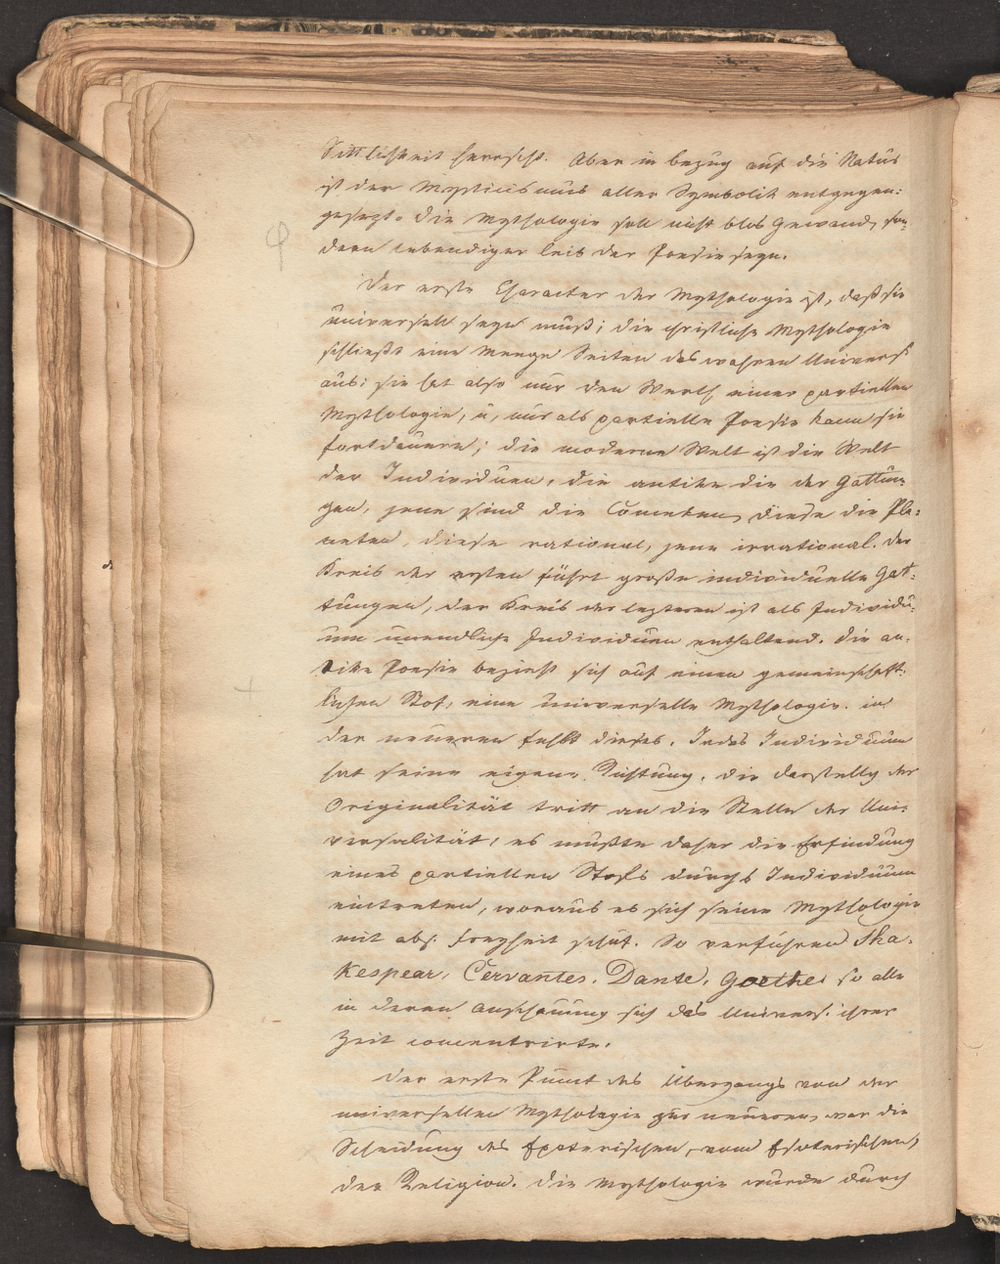 Sittlichkeit herrscht. Aber in bezug auf die Natur
ist der Mysticismus aller Symbolik entgegen:
gesezt. die Mythologie soll nicht blos Gewand, son:
dern lebendiger Leib der Poesie seyn.
Der erste Character der Mythologie ist, daß sie
universell seyn muß; die christliche Mythologie
schließt eine Menge Seiten des wahren Univers.
aus; sie hat also nur den Werth einer partiellen
Mythologie, u, nur als partielle Poesie kann sie
fortdauern; die moderne Welt ist die Welt
der Individuen, die antike die der Gattun:
gen, jene sind die Cometen, diese die Pla:
neten, diese rational, jene irrational. der
Kreis der ersten führt große individuelle Gat:
tungen, der Kreis der lezteren ist als Individu:
um unendliche Individuen enthaltend. die an:
tike Poesie bezieht sich auf einen gemeinschaft:
lichen Stof, eine universelle Mythologie. in
der neueren fehlt dieses. Jedes Individuum
hat seine eigene Richtung. die darstellg der
Originalität tritt an die Stelle der Uni:
versalität, es mußte daher die Erfindung
eines partiellen Stofs durchs Individuum
eintreten, woraus es sich seine Mythologie
mit abs. Freyheit schuf. So verfuhren Sha:
kespear, Cervantes, Dante, Goethe, so alle
in deren Anschauung sich das Univers. ihrer
Zeit concentrirte.
Der erste Punct des Übergangs von der
universellen Mythologie zur neueren, war die
Scheidung des Exoterischen, vom Esoterischen,
der Religion. die Mythologie wurde durch